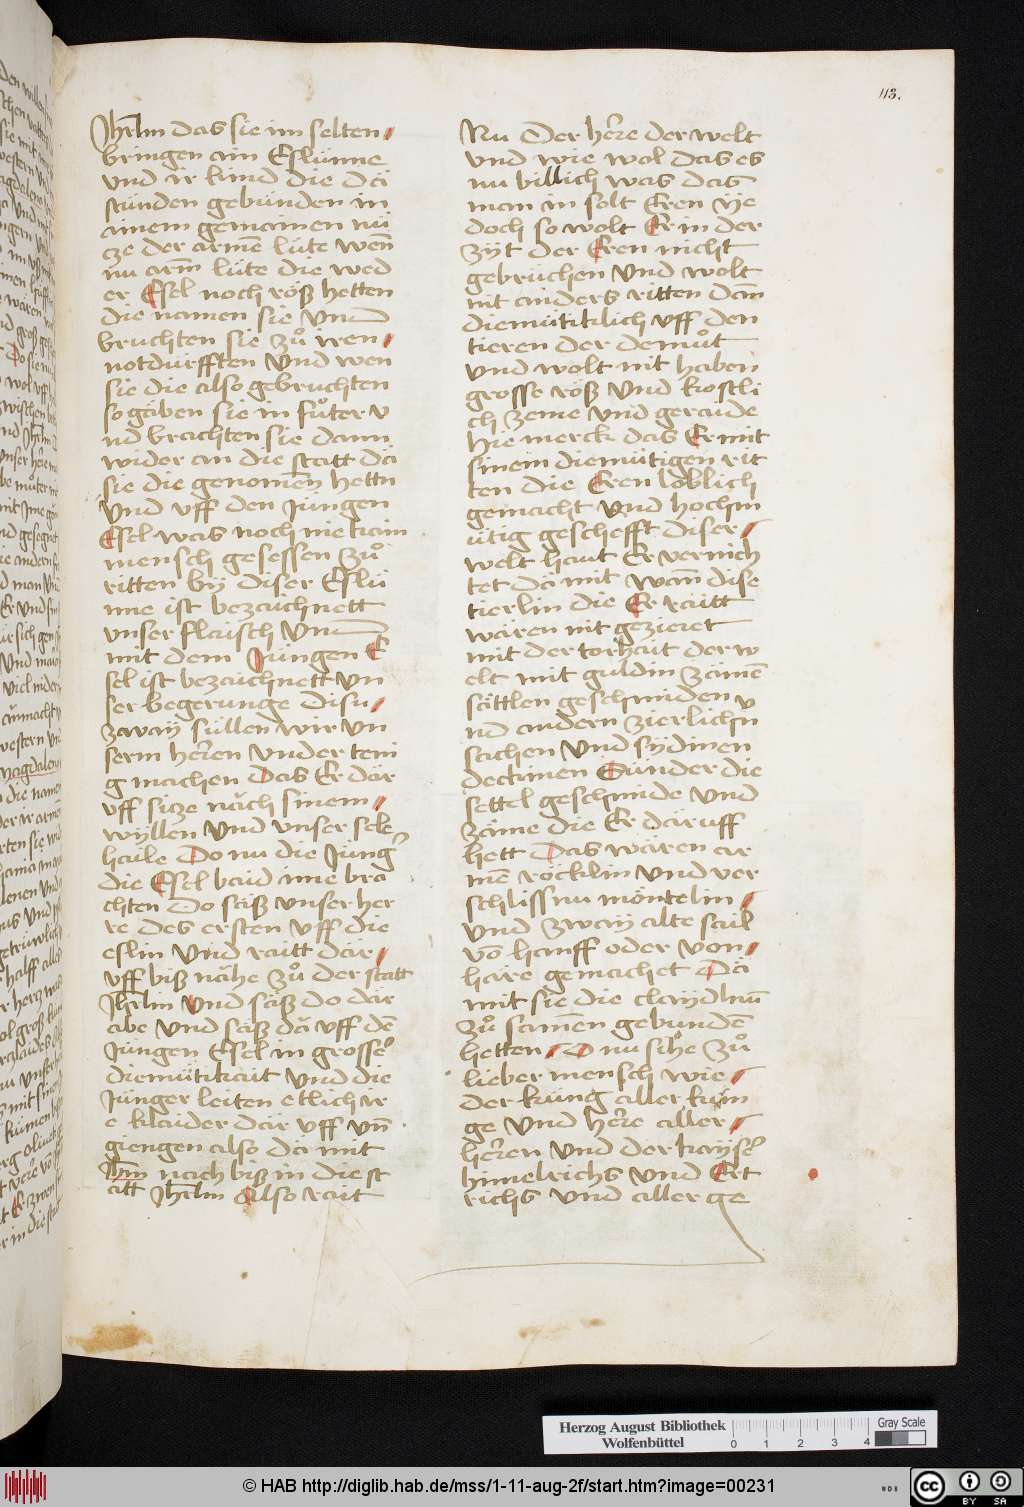 113.
Jhrlm das sie im selten
bringen ain Eslünne
vnd ir kind die dā
stünden gebünden in
ainem gemainen nü
cze der arme lüte wen̄
nu arm̄ lüte die wed
er Esel noch röß hetten
die namen sie Vnnd
bruchten sie zů iren
notdürfften Vnd wen
sie die also gebruchten
so gāben sie in fůter v
nd brachten sie dann
wider an die statt dā
sie die genomen hettn
Vnd vff den Jüngen
Esel was noch nie kain
mensch gesessen zů
ritten bÿ diser Eslü
nne ist bezaichnett
vnser flaisch Vnnd
mit dem Jüngen E
sel ist bezaichnett vn
ser begerunge Disu
zwaÿ süllen wir vn
serm heren vnder teni
g machen Das Er dār
vff sicze nāch sinem
wÿllen Vnd vnser sele
haile Do nu die Jüng
die Esel baid ime bra
chten Do sāß vnser her
re des ersten Vff die
eslin Vnd raitt dār
vff biß nāhe zů der statt
Jhrlm Vnd sāß do dār
abe Vnd sāß dā vff dē
Jüngen Esel in grosser
diemütikait Vnd die
Jünger leiten etlich ir
e klaider dār vff vn̄
giengen also dā mit
Jm nach biß in die st
att Jhrlm Also rait
Nu Der here der welt
vnd wie wol das es
nu billich was das
man in solt Eren ÿe
doch so wolt Er in der
zÿt der Eren nicht
gebrüchen Vnd wolt
nit anders ritten dan̄
diemütiklich vff den
tieren der demůt
vnd wolt nit haben
grosse röß Vnd kostli
ch zeme Vnd geraide
Hie merck das Er mit
sinem diemütigen rit
ten die Eren löblich
gemacht Vnd hochm
ütig geschefft diser
welt haut Er vernich
tet dā mit wan̄ dise
tierlin die Er raitt
wāren nit gezieret
mit der torhait der w
elt mit guldin zāmē
sāttlen geschmiden v
nd andern zierlichn
sachen Vnd sÿdinen
deckinen Sünder die
settel geschmide Vnd
zāme die Er dār vff
hett Das wāren ar
me röcklin Vnd ver
schlissnu möntelin
vnd zwaÿ alte sail
vō hanff oder von
hāre gemachet Dā
mit sie die claÿdlin̄
zů samen gebundē
hetten Do nu sihe zů
lieber mensch wie
der küng aller kün
ge Vnd here aller
heren Vnd der kaÿser
himelrichs Vnd Ert
richs Vnd aller ge
Herzog August Bibliothek
Wolfenbüttel
0 1 2 3 4
Gray Scale
© HAB http://diglib.hab.de/mss/1-11-aug-2f/start.htm?image=00231
WDB
cc BY SA